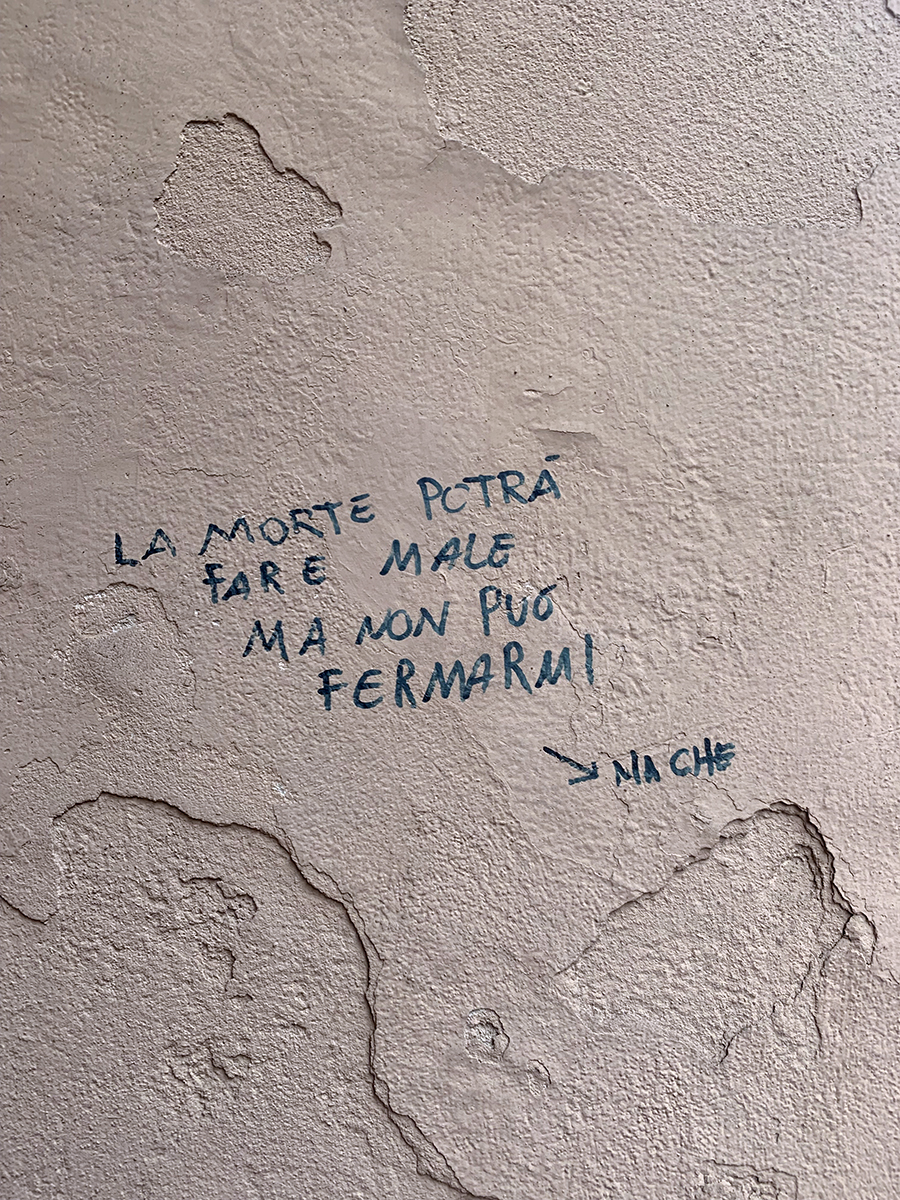 LA MORTE POTRÀ
FARE MALE
MA NON PUÓ
FERMARMI
↘ MA CHE